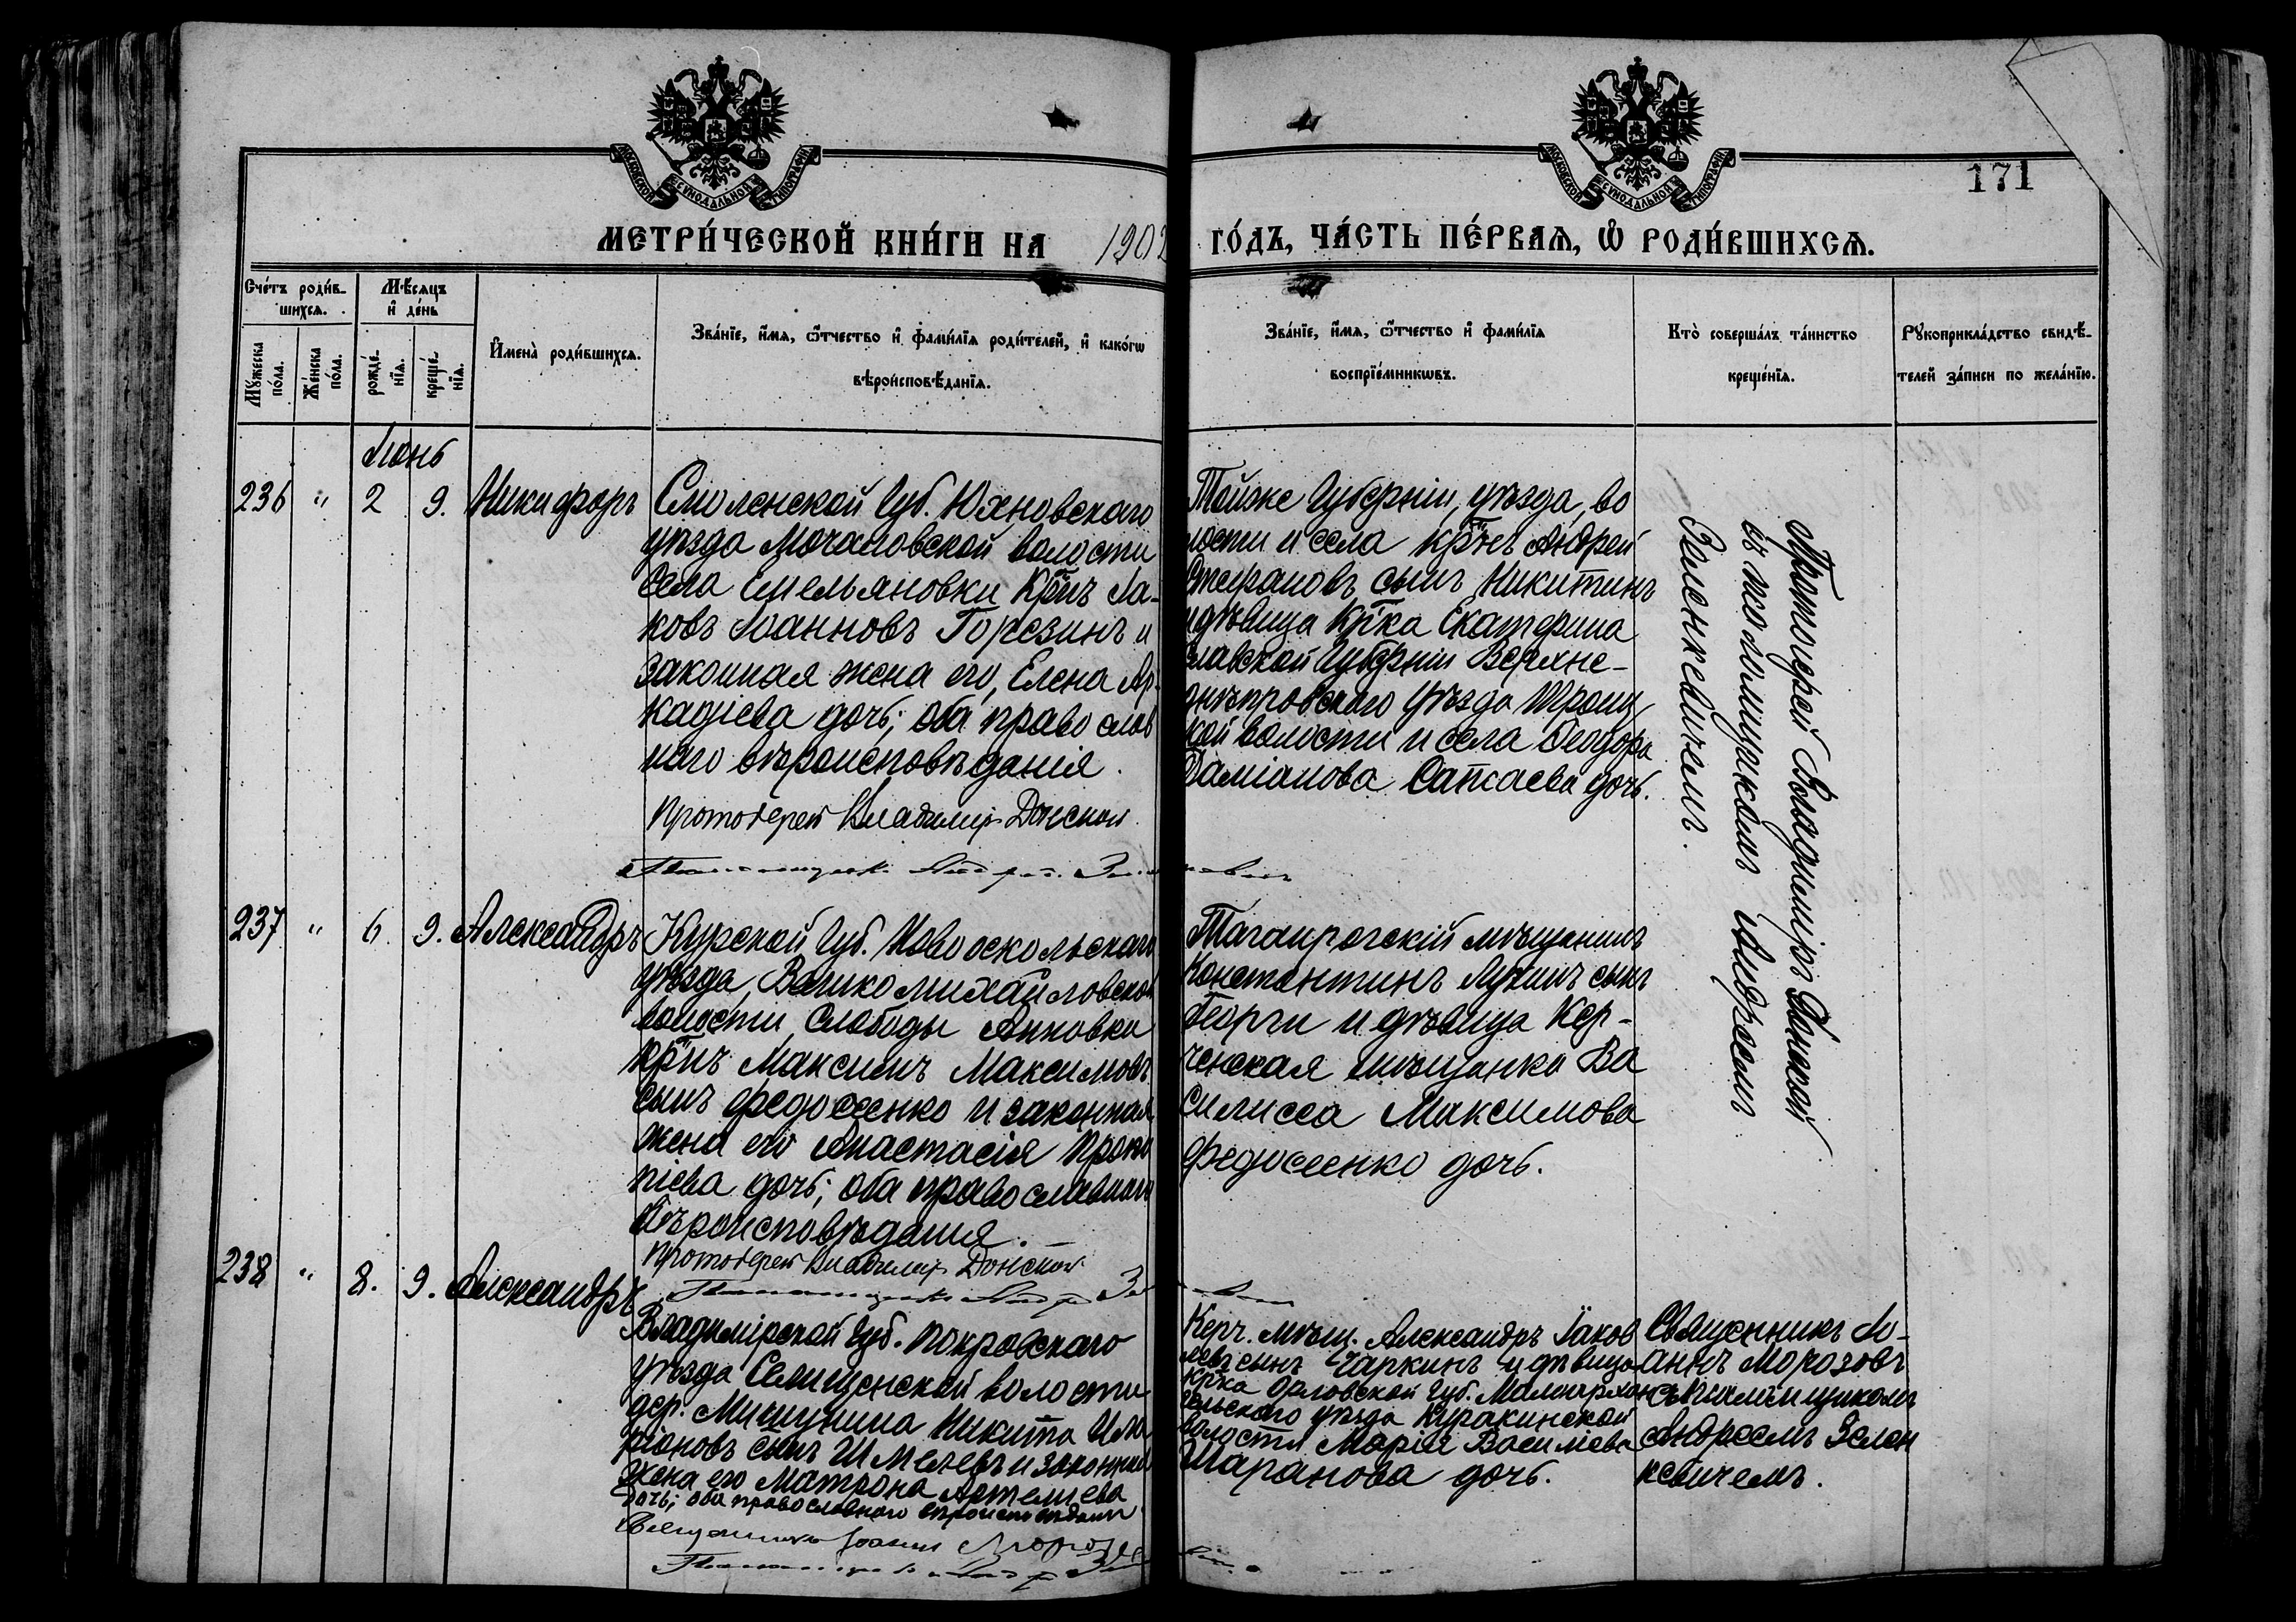 МОСКОВСКОЙ СѴНОДАЛЬНОЙ ТИПОГРАФІИ
МОСКОВСКОЙ СѴНОДАЛЬНОЙ ТИПОГРАФІИ
171
МЕТРИ́ЧЕСКОЙ КНИ́ГИ НА 1902 ГО́ДЪ, ЧА́СТЬ ПЕ́РВАѦ, Ѡ҆ РОДИ́ВШИХСѦ.
Сче́тъ роди́в-
шихсѧ.
Мꙋ́жеска
по́ла.
Же́нска
по́ла.
Мѣ́сѧцъ
и҆ де́нь
рожде́-
нїѧ.
креще́-
нїѧ.
И҆мена̀ роди́вшихсѧ.
Зва́нїе, и҆́мѧ, ѻ҆́тчество и҆ фами́лїѧ роди́телей, и҆ како́гѡ
вѣроисповѣ́данїѧ.
Зва́нїе, и҆́мѧ, ѻ҆́тчество и҆ фами́лїѧ
воспрїе́мникѡвъ.
Кто̀ соверша́лъ та́инство
креще́нїѧ.
Рꙋкоприкла́дство свидѣ́-
телей за́писи по жела́нїю.
Іюнь
236 " 2 9. Никифоръ
Смоленской Губ. Юхновскаго
уѣзда Мочаловской волости
села Емельяновки Кр̃нъ Іа-
ковъ Іоанновъ Горезинъ и
законная жена его, Елена Ар-
кадіева дочь; оба православ
наго вѣроисповѣданія.
Протоіерей Владимір Донской
Тойже Губерніи, уѣзда, во
лости и села кр̃нъ Андрей
Стефановъ сынъ Никитинъ
и дѣвица Кр̃ка Екатерино
славской Губерніи Верхне-
днѣпровскаго уѣзда Троиц
кой волости и села Ѳеодора
Даміанова дочь.
Протоіерей Владиміръ Донской
съ псаломщикомъ Андреемъ
Зеленкевичемъ.
237 " 6. 9. Александръ
Курской Губ. Новооскольскаго
уѣзда, Велико михайловской
волости, Слободы Анновки
кр̃нъ Максимъ Максимовъ
сынъ Федосеенко и законная
жена его Анастасія Проко
піева дочь; оба православнаго
вѣроисповѣданія.
Протоіерей Владимір Донской
Таганрогскій мѣщанинъ
Константинъ Лукинъ сынъ
Георги и дѣвица Кер-
ченская мѣщанка Ва
силисса Максимова
Федосеенко дочь.
238 " 8. 9. Александръ
Владимірской Губ. Покровскаго
уѣзда Селищенской волости
дер. Мишунина Никита Ила
ріоновъ сынъ Шмелевъ и законная
жена его Матрона Артемиева
дочь; оба православнаго вѣроисповѣданія
Священникъ Іоаннъ Морозовъ
Керч. мѣщ. Александръ Іаков
левъ сынъ Чаркинъ и дѣвица
кр̃ка Орловской Губ. Малоархан
гельскаго уѣзда Куракинской
волости Марія Васильева
Шаранова дочь.
Священникъ Іо-
аннъ Морозовъ
съ псаломщикомъ
Андреемъ Зелен
кевичемъ.